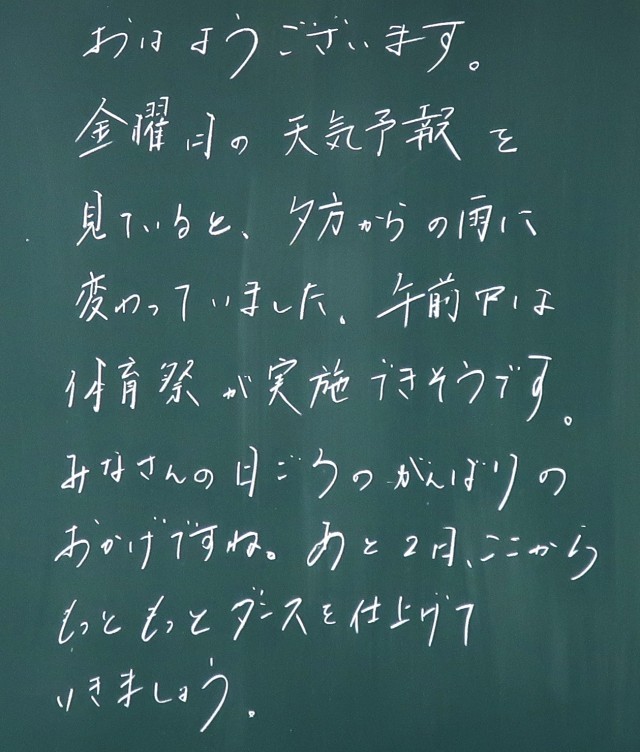 おはようございます。
金曜日の天気予報を
見ていると、夕方からの雨に
変わっていました。午前中は
体育祭が実施できそうです。
みなさんの日ごろのがんばりの
おかげですね。あと2日、ここから
もっともっとダンスを仕上げて
いきましょう。